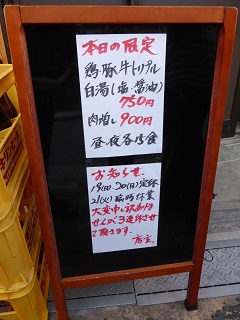 本日の限定
鶏豚牛トリプル
白湯(塩・醤油)
750円
肉増し900円
昼・夜各15食
お知らせ
19(日)、20(月)定休
21(火)臨時休業
大変申し訳ありま
せんが3連休させ
て頂きます。
店主